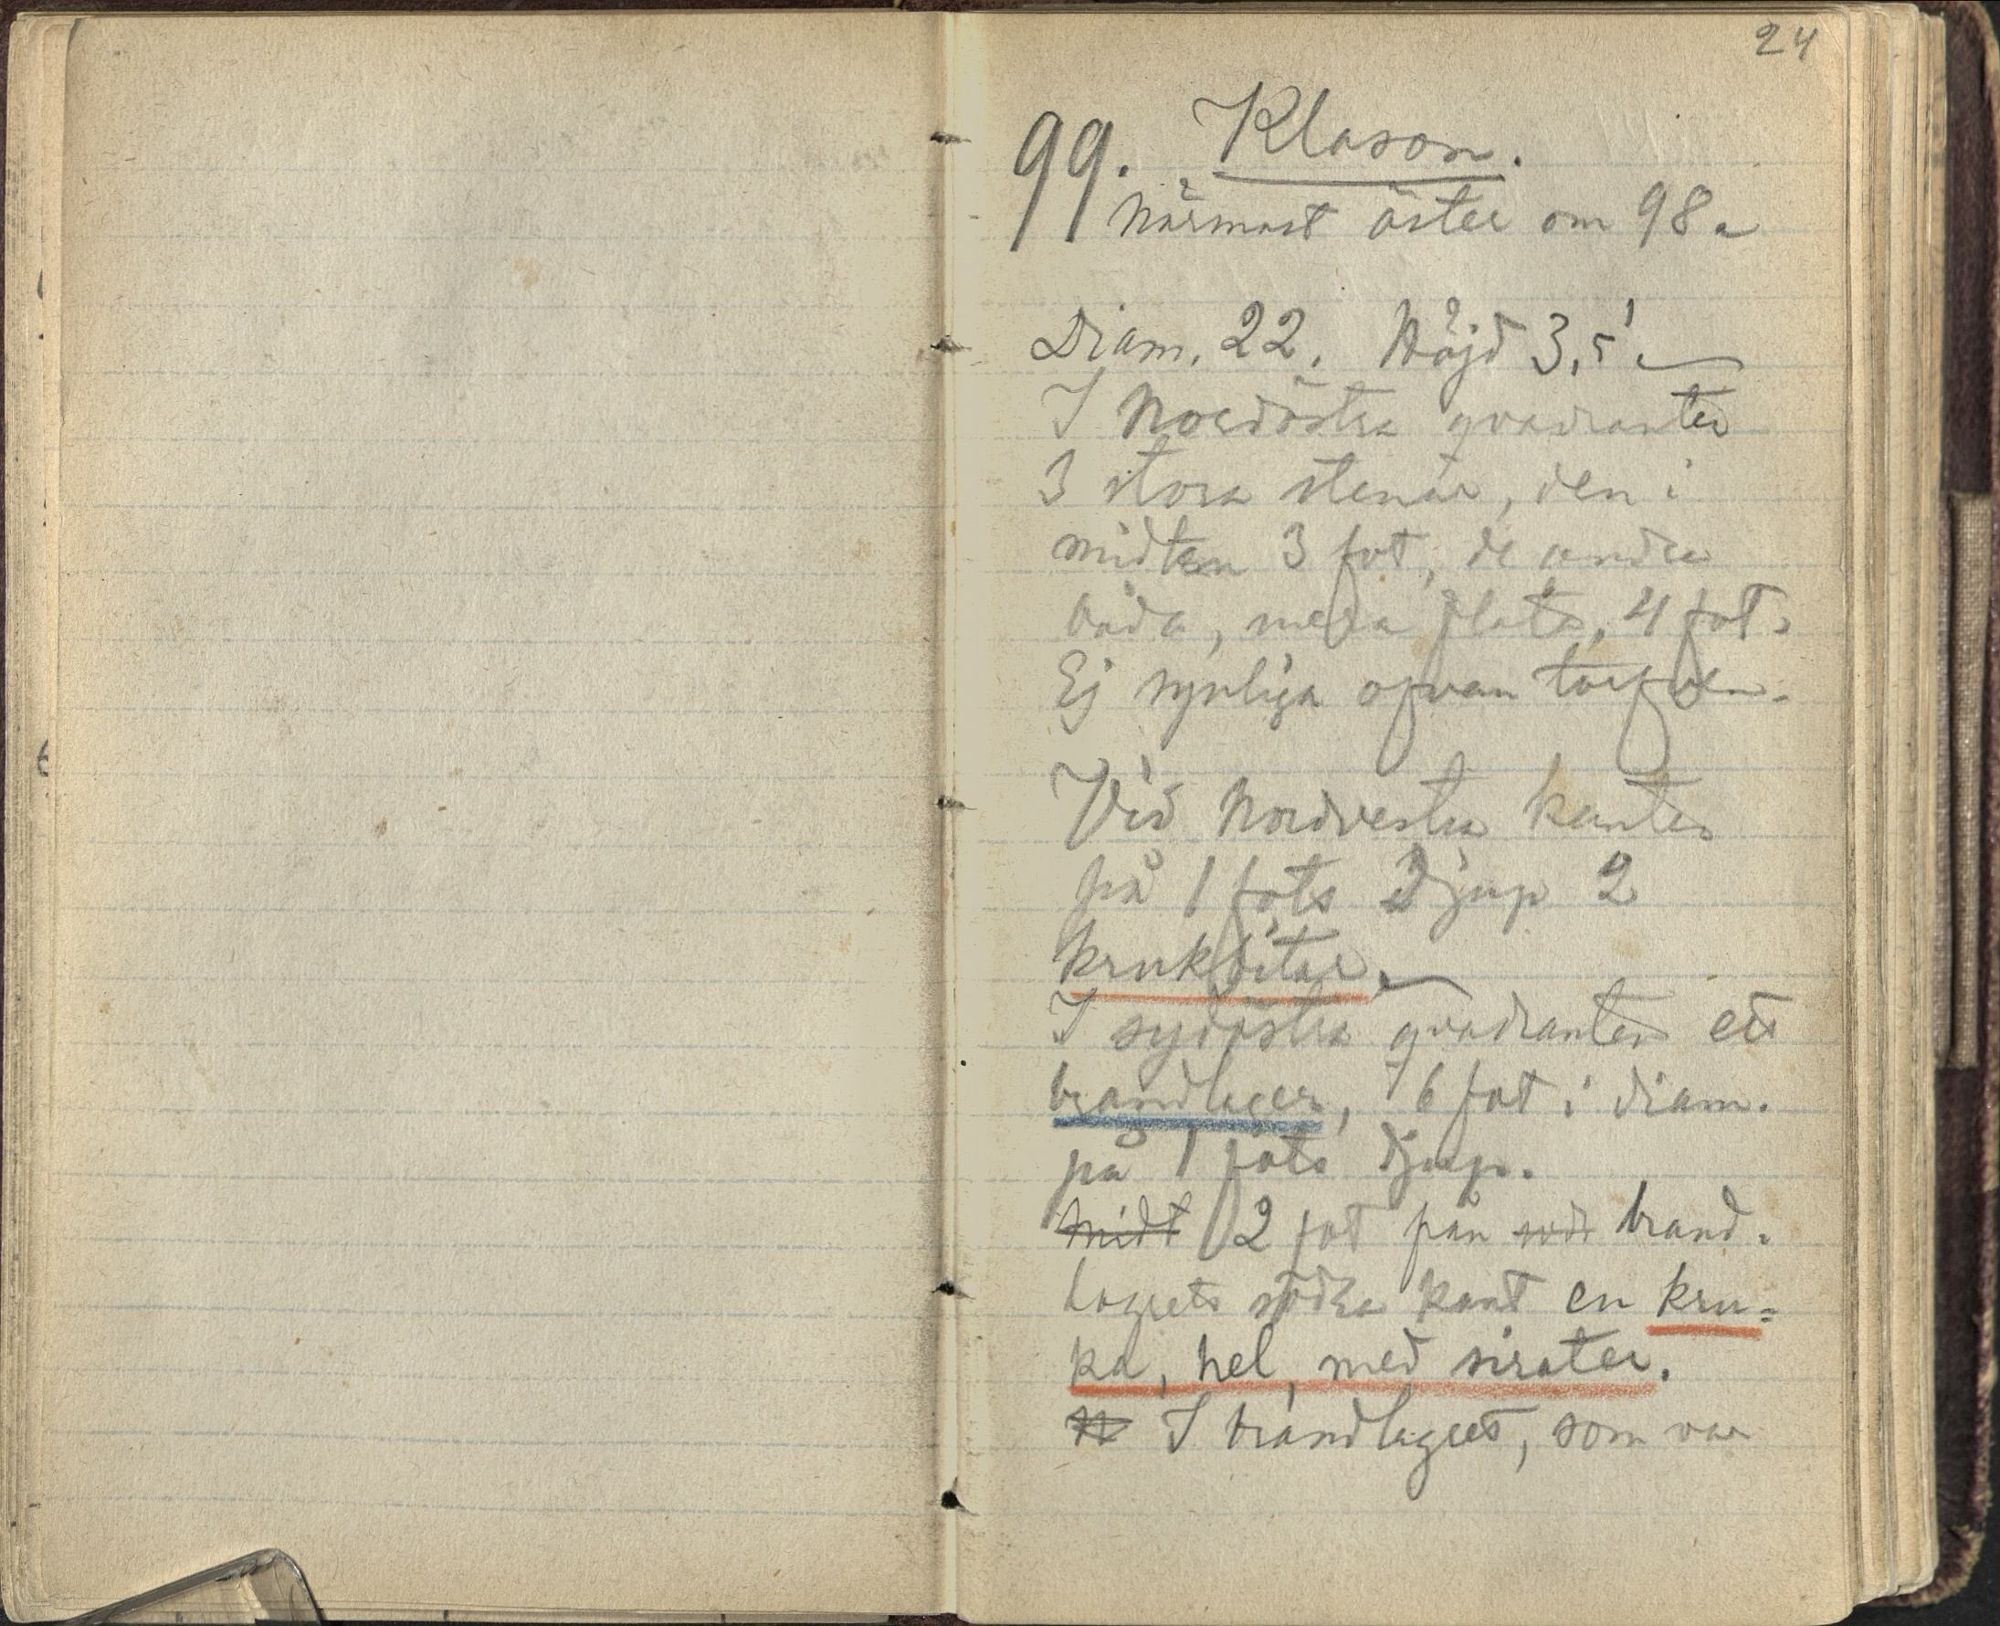 24
99. Klason.
Närmast öster om 98.
Diam. 22. Höjd 3,5'.
I Nordöstra qvadranten
3 stora stenar, den i
midten 3 fot, de andra
båda, mera flata, 4 fot.
Ej synliga ofvan torfven.
Vid Nordvestra kanten
på 1 fots Djup 2
krukbitar.
I sydöstra qvadranten ett
brandlager, 6 fot i diam.
på 1 fots djup.
Midt 2 fot från brand-
lagrets södra kant en kru=
ka, hel, med sirater.
I brandlagret, som var